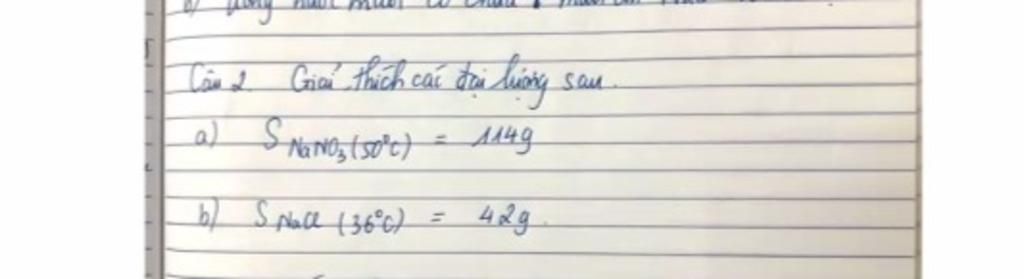 Câu 2. Giải thích các đại lượng sau.
a) S NaNO₃ (50°C) = 114g
b) S NaCl (36°C) = 42g.